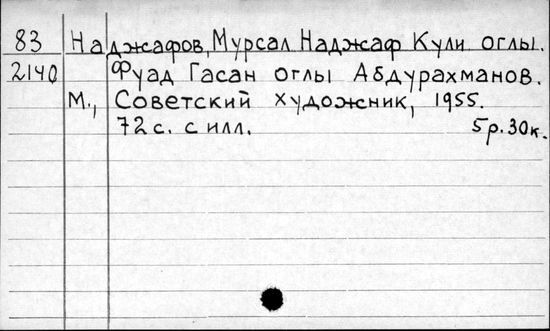 83 Наджафов, Мурсал Наджаф Кули оглы.
2140 Фуад Гасан оглы Абдурахманов.
М., Советский художник, 1955.
72 с. с илл. 5р.30к.